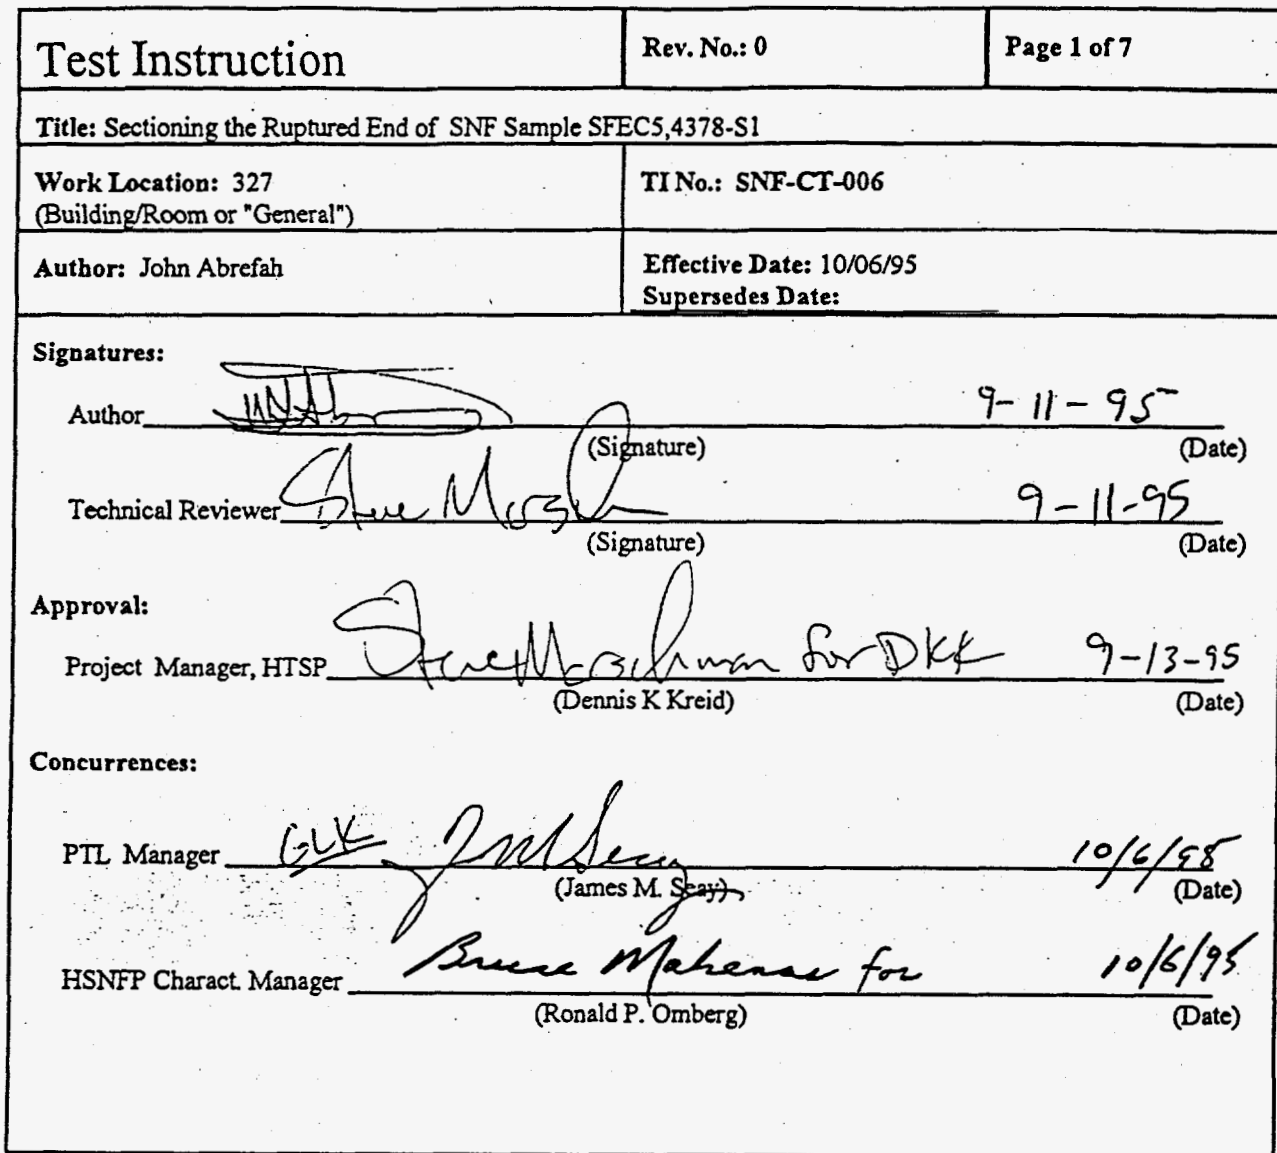 Test Instruction
Rev. No.: 0
Page 1 of 7
Title: Sectioning the Ruptured End of SNF Sample SFEC5,4378-S1
Work Location: 327
(Building/Room or "General")
TI No.: SNF-CT-006
Author: John Abrefah
Effective Date: 10/06/95
Supersedes Date:
Signatures:
Author 9-11-95
(Signature) (Date)
Technical Reviewer Steve 9-11-95
(Signature) (Date)
Approval:
Project Manager, HTSP Steve Marschman for DKK 9-13-95
(Dennis K Kreid) (Date)
Concurrences:
PTL Manager GLK JM Seay 10/6/95
(James M. Seay) (Date)
HSNFP Charact. Manager Bruce Makenas for 10/6/95
(Ronald P. Omberg) (Date)